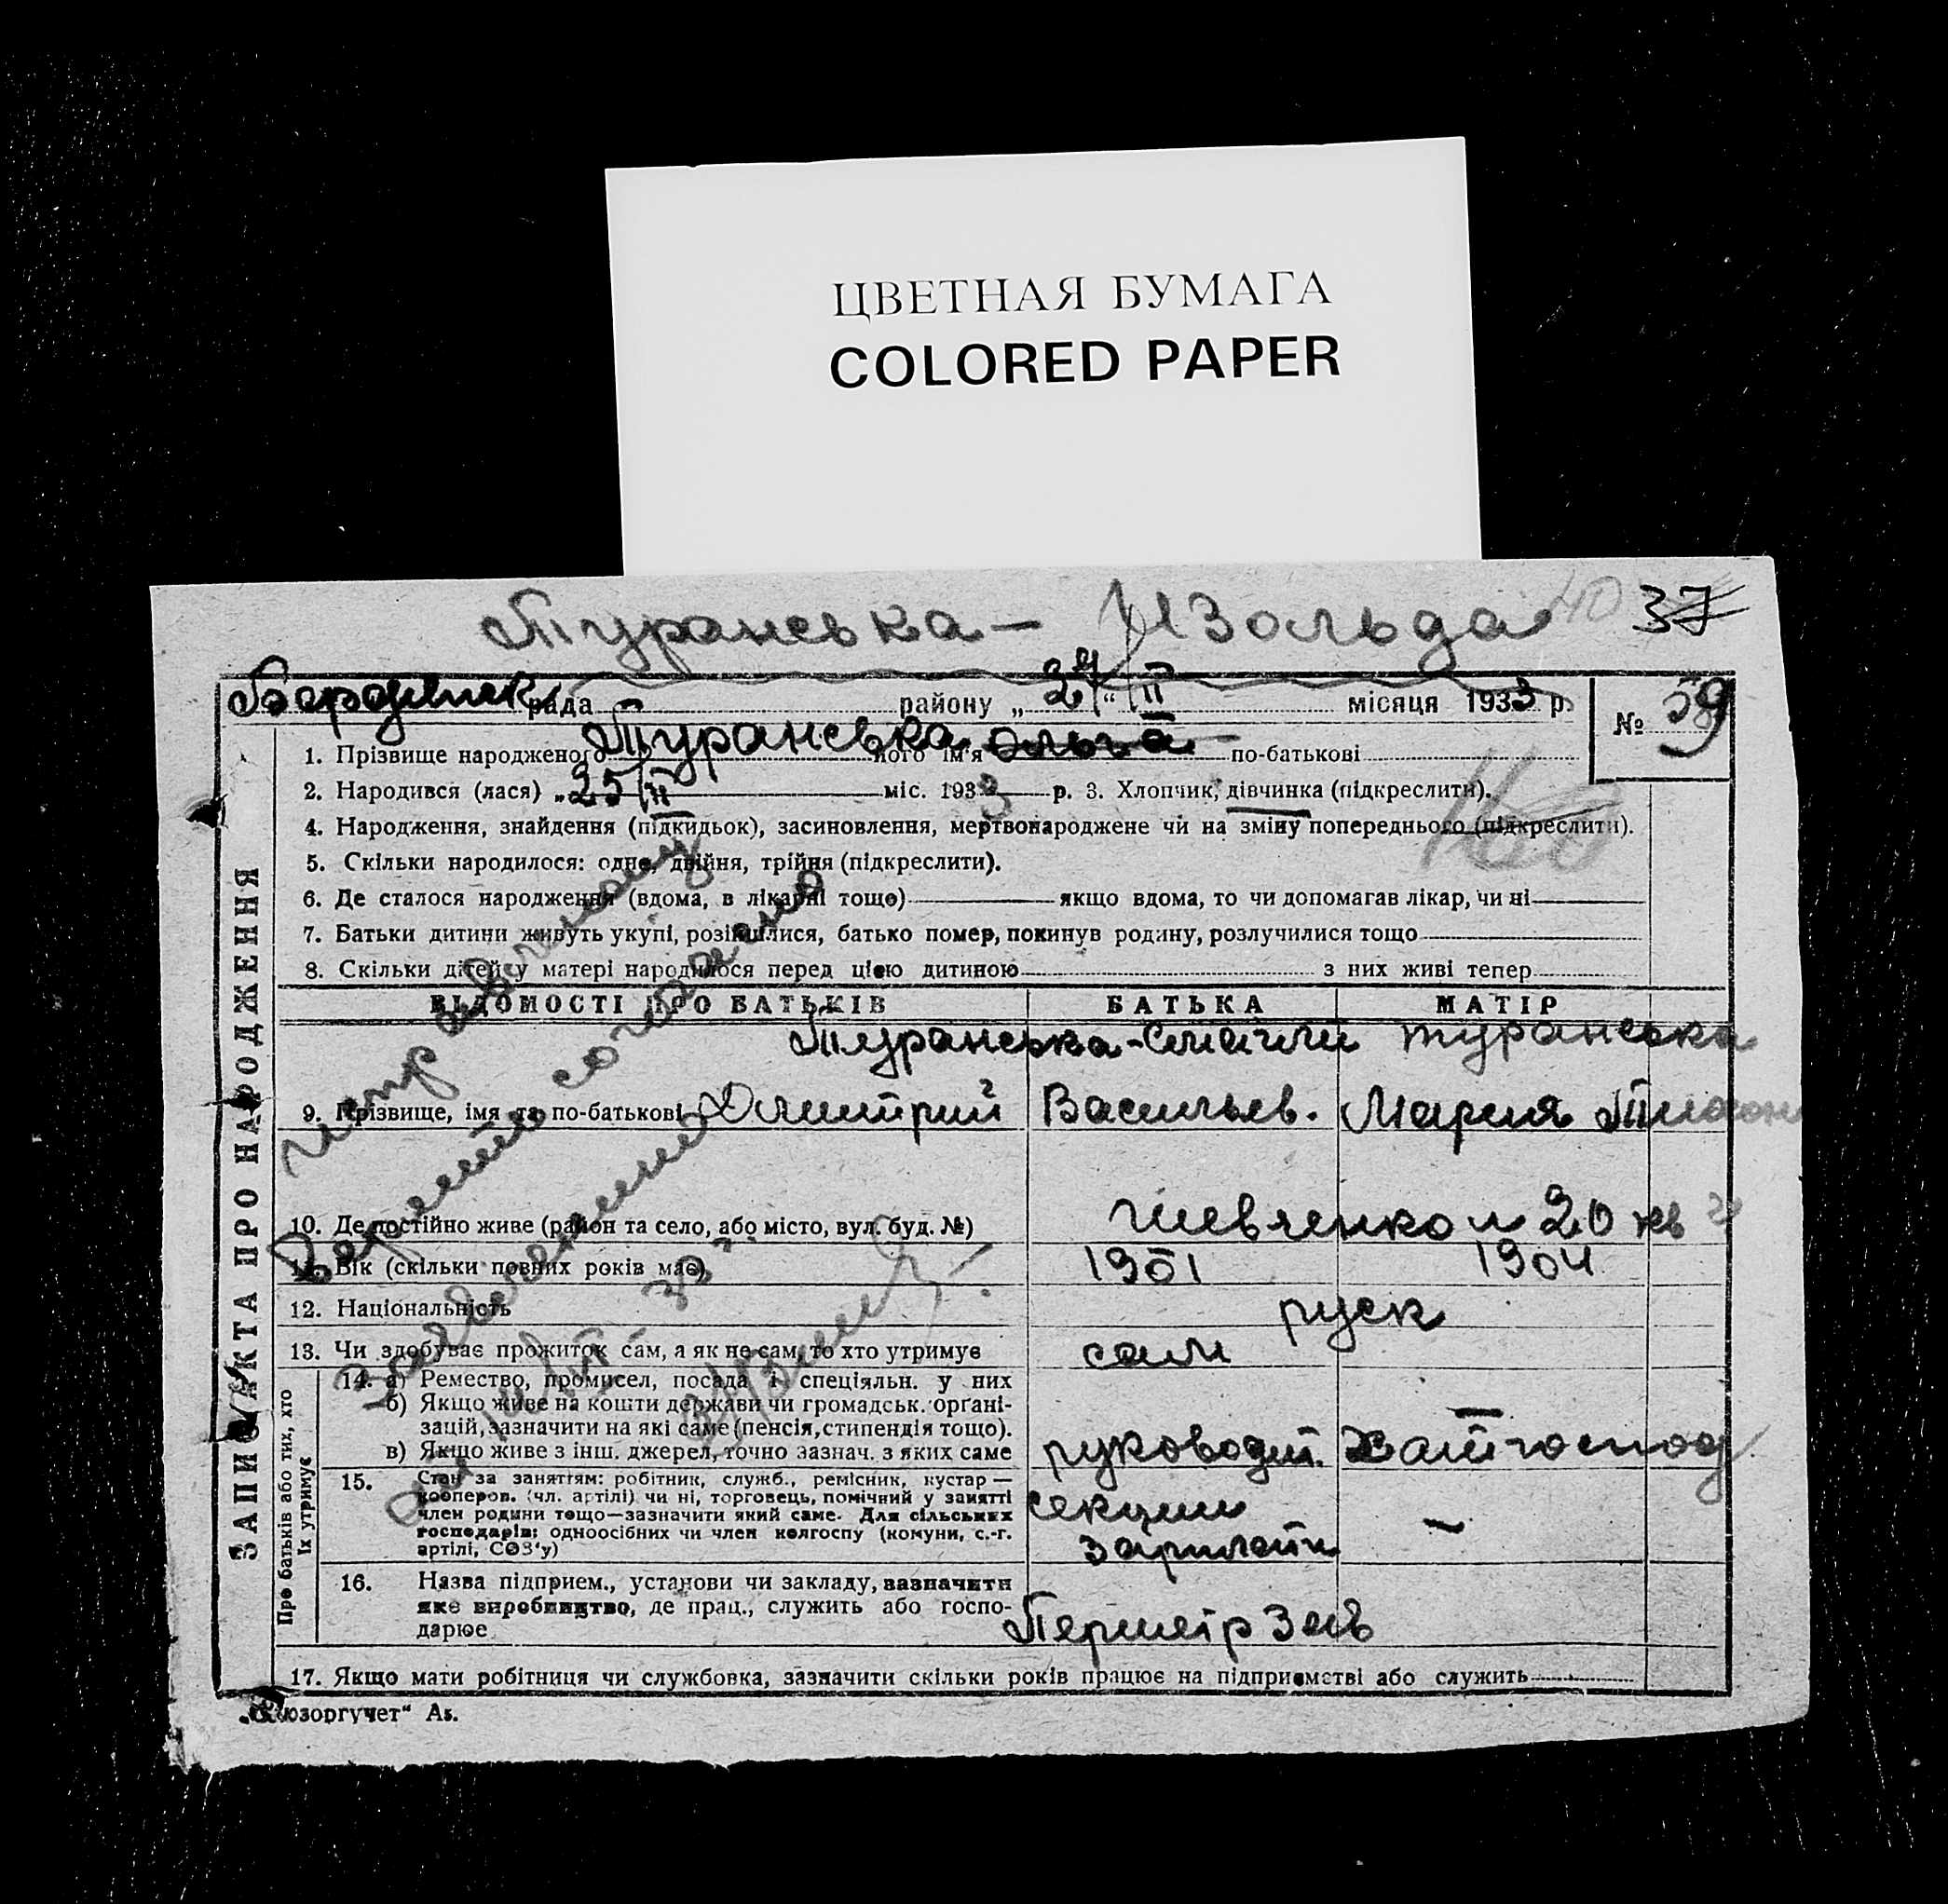 ЦВЕТНАЯ БУМАГА
COLORED PAPER
Туранська - Изольда 40 37
рада району „27“ II місяця 1933 р. № 39
1. Прізвище народженого Туранська його ім'я Ольга по-батькові
2. Народився (лася) „25/II міс. 1933 р. 3. Хлопчик, дівчинка (підкреслити).
4. Народження, знайдення (підкидьок), засиновлення, мертвонароджене чи на зміну попереднього (підкреслити).
5. Скільки народилося: одне, двійня, трійня (підкреслити).
6. Де сталося народження (вдома, в лікарні тощо) якщо вдома, то чи допомагав лікар, чи ні
7. Батьки дитини живуть укупі, розійшлися, батько помер, покинув родину, розлучилися тощо
8. Скільки дітей у матері народилося перед цією дитиною з них живі тепер
ВІДОМОСТІ ПРО БАТЬКІВ БАТЬКА МАТІР
Туранська - Туранська
9. Прізвище, імя та по-батькові Дмитрий Васильев. Мария
10. Де постійно живе (район та село, або місто, вул. буд. №) Шевченко 20 кв
11. Вік (скільки повних років має) 1901 1904
12. Національність руск
13. Чи здобуває прожиток сам, а як не сам, то хто утримує сам
14. а) Ремество, промисел, посада і спеціяльн. у них
б) Якщо живе на кошти держави чи громадськ. органі-
зацій, зазначити на які саме (пенсія, стипендія тощо).
в) Якщо живе з інш. джерел, точно зазнач. з яких саме руководит. Хатгоспод
15. Стан за заняттям: робітник, служб., ремісник, кустар —
кооперов. (чл. артілі) чи ні, торговець, помічний у занятті
член родини тощо—зазначити який саме. Для сільських
господарів: одноосібних чи член колгоспу (комуни, с.-г.
артілі, СОЗ'у)
секции
зарплати
16. Назва підприєм., установи чи закладу, зазначити
яке виробництво, де прац., служить або госпо-
дарює
17. Якщо мати робітниця чи службовка, зазначити скільки років працює на підприємстві або служить
ЗАПИС АКТА ПРО НАРОДЖЕННЯ
Про батьків або тих, хто
їх утримує
„Союзоргучет“